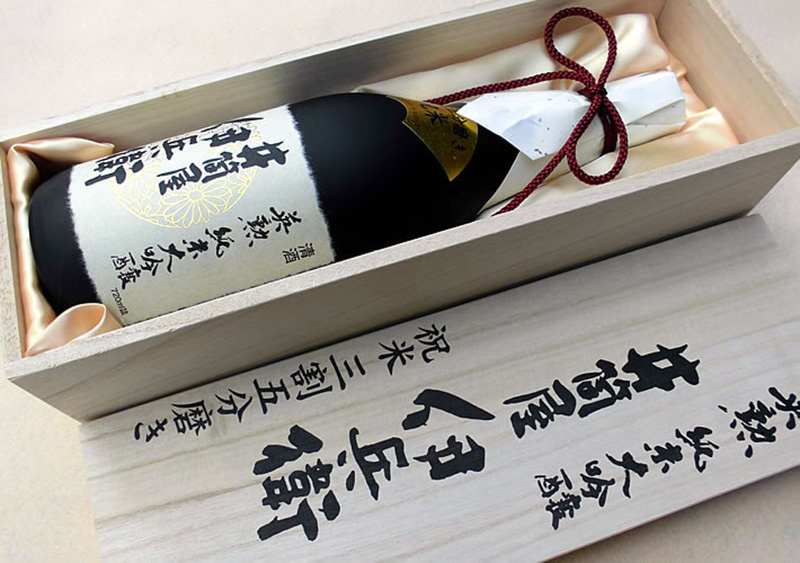 井筒屋
伊兵衛
英勲
純米大吟醸
清酒
720ml詰
英勲
純米大吟醸
井筒屋
伊兵衛
祝米三割五分磨き